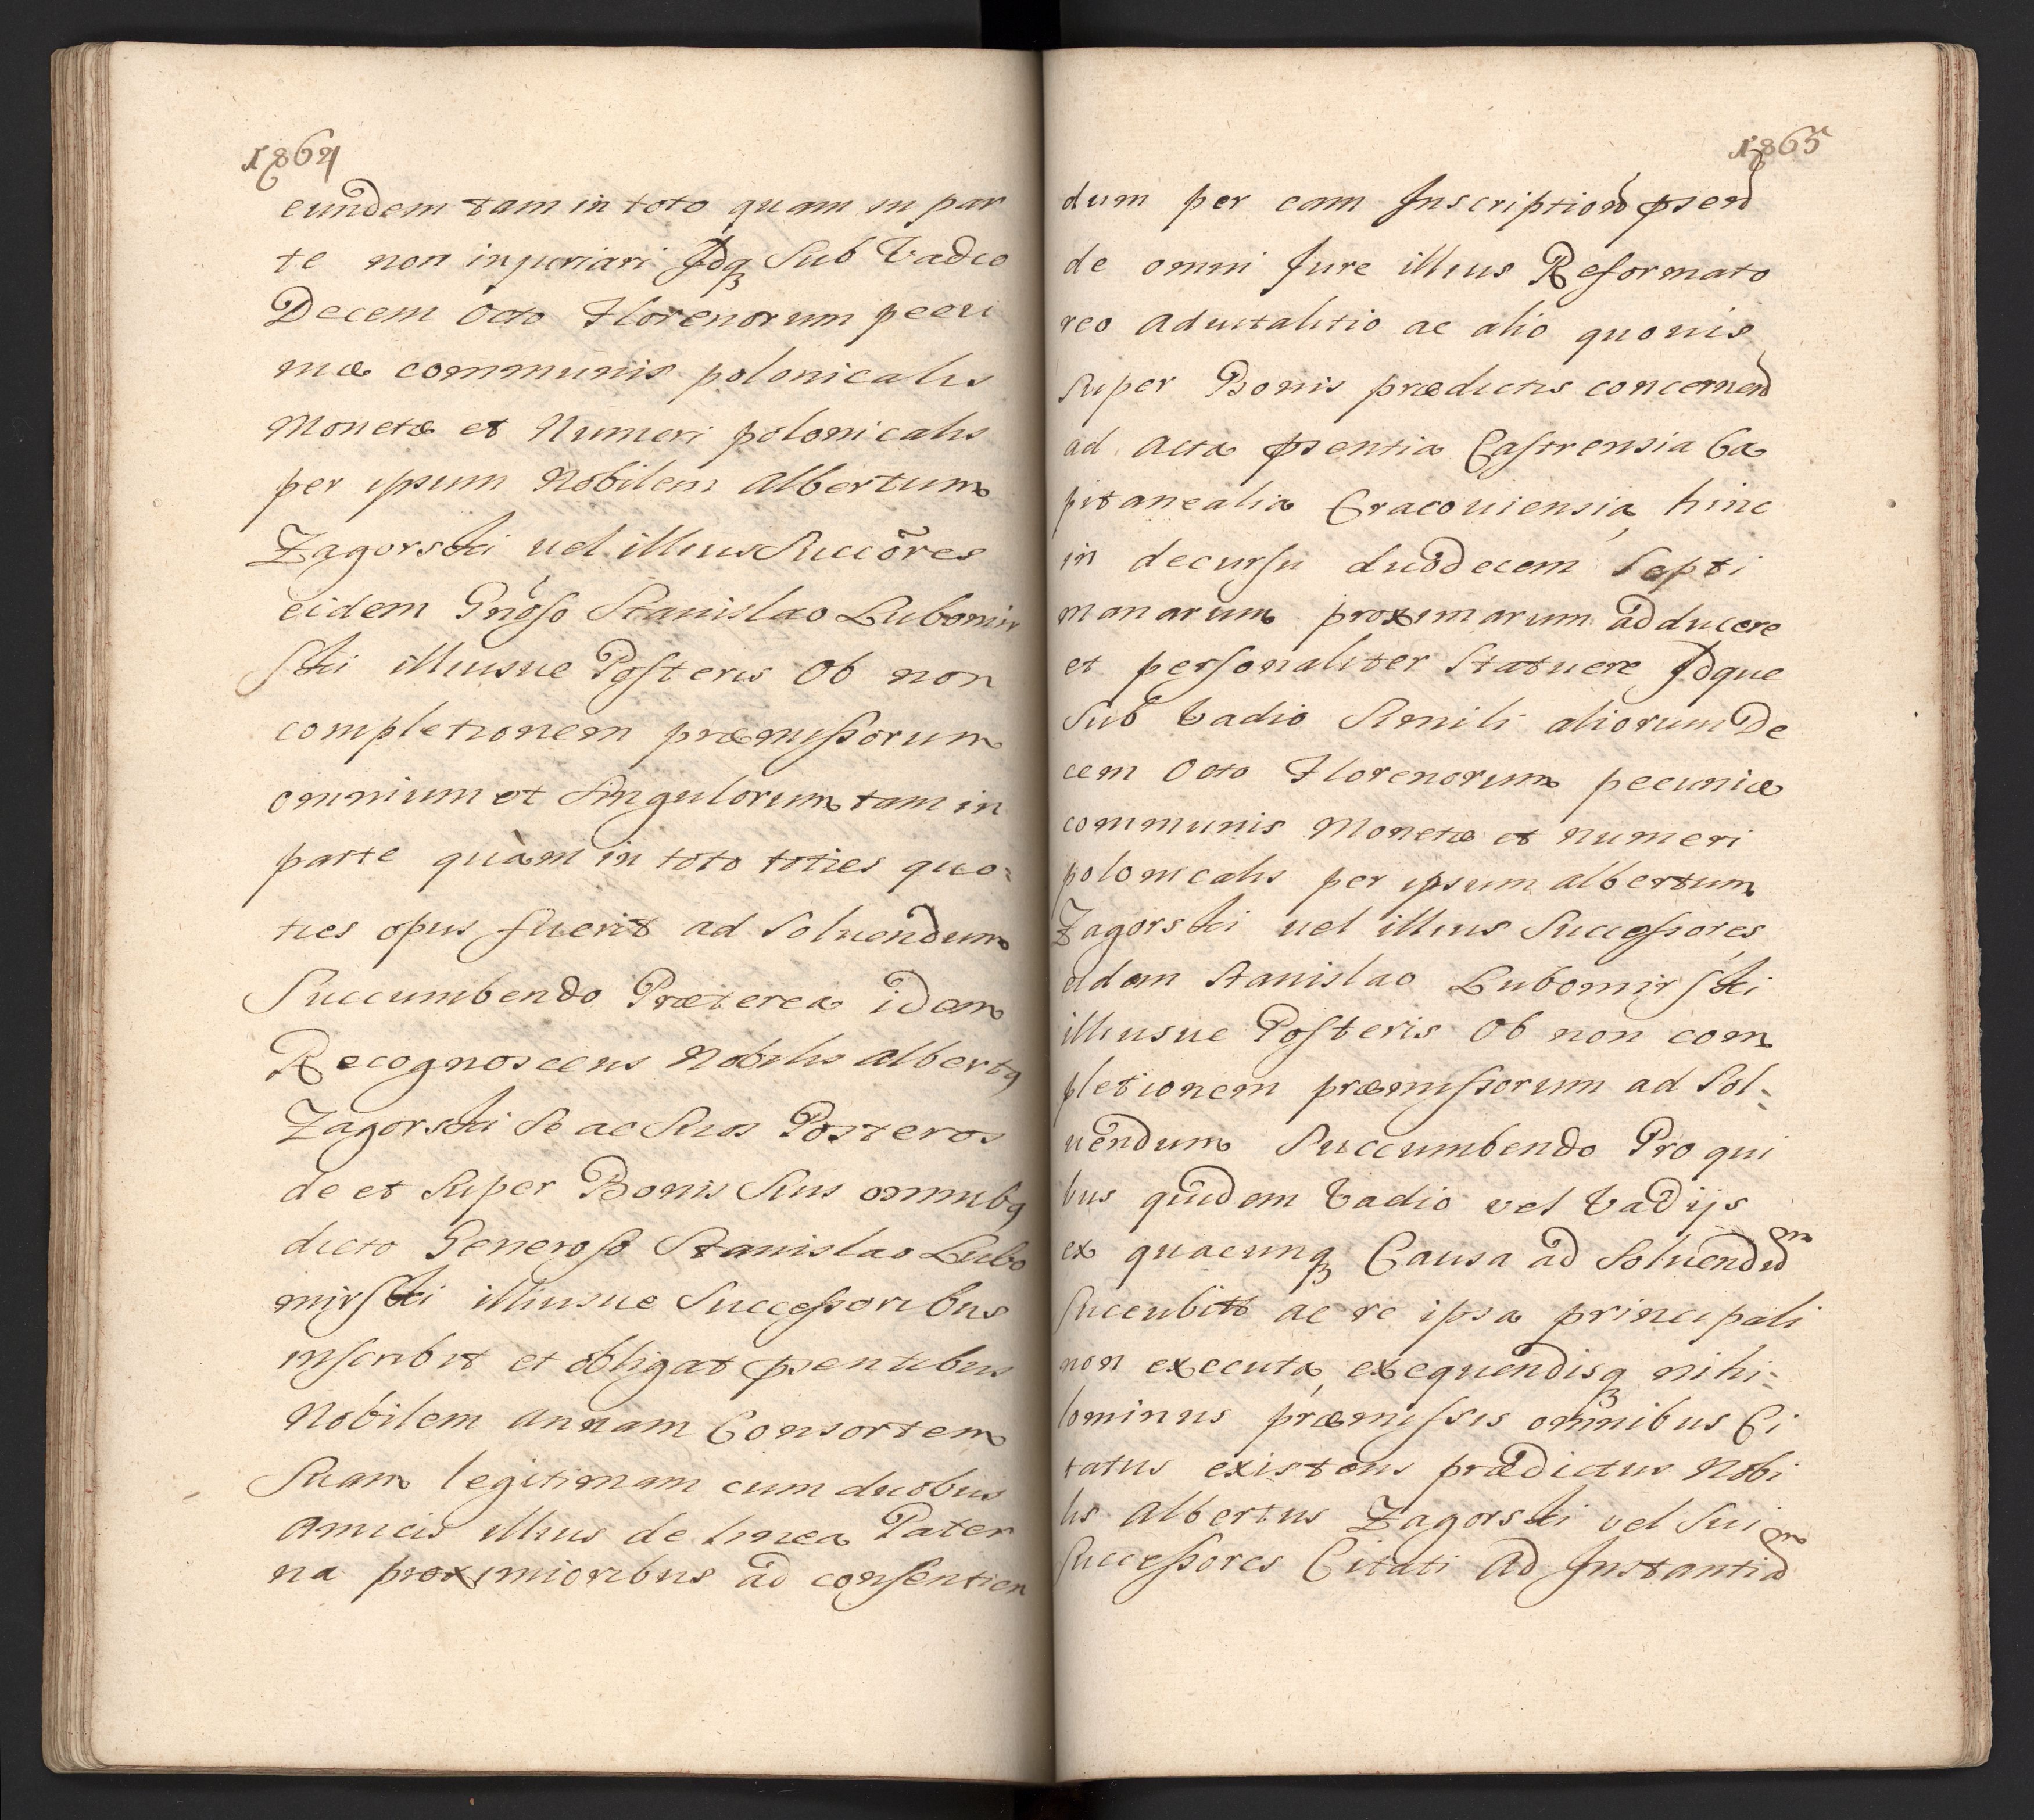 1864
eundem tam in toto quam in par
te non injuriari Idq Sub Vadio
Decem Octo Florenorum pecu
niæ communis polonicalis
Monetæ et Numeri polonicalis
per ipsum Nobilem Albertum
Zagorski uel illius Succõres
eidem Gnõso Stanislao Lubomir
ski illiusue Posteris Ob non
completionem præmissorum
omnium et Singulorum tam in
parte quàm in toto toties quo=
ties opus fuerit ad Soluendum
Succumbendo Præterea idem
Recognoscens Nobilis Albertq
Zagorski Se ac Suos Posteros
de et Super Bonis Suis omnibq
dicto Generoso Stanislao Lubo
mirski illiusue Successoribus
inscribit et obligat psentibus
Nobilem Annam Consortem
Suam legitimam cum duobus
Amicis illius de linea Pater
na proximioribus ad consentien
1865
dum per eam Inscriptioñ psend
de omni Jure illius Reformato
reo aduitalitio ac alio quouis
Super Bonis prædictis concernend
ad Acta psentia Castrensia Ca
pitanealia Cracouiensia, hinc
in decursu duodecem Septi
manarum proximarum adducere
et personaliter Statuere Idque
Sub Vadio Simili aliorum De
cem Octo Florenorum pecuniæ
communis Monetæ et numeri
polonicalis per ipsum Albertum
Zagorski uel illius Successores,
eidem Stanislao Lubomirski
illiusue Posteris Ob non com
pletionem præmissorum ad Sol=
uendum Succumbendo Pro qui
bus quidem Vadio vel Vadijs
ex quacunq Causa ad Soluendum
Succubitt ac re ipsa principali
non executa, exequendisq nihi=
lominus præmissis omnibus Ci
tatus existens prædictus Nobi
lis Albertus Zagorski vel Sui
Successores Citati Ad Instantiam